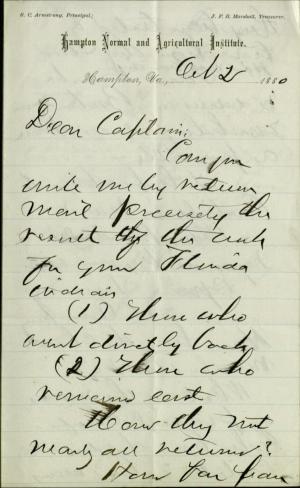 S. C. Armstrong, Principal; J. F. B. Marshall, Treasurer.
Hampton Normal and Agricultural Institute.
Hampton, Va., Oct 2 1880
Dear Captain;
Can you
write me by return
mail precisely the
result of the work
for your Florida
indians
(1) Those who
went directly back
(2) Those who
remained east
Have they not
nearly all returned?
How far